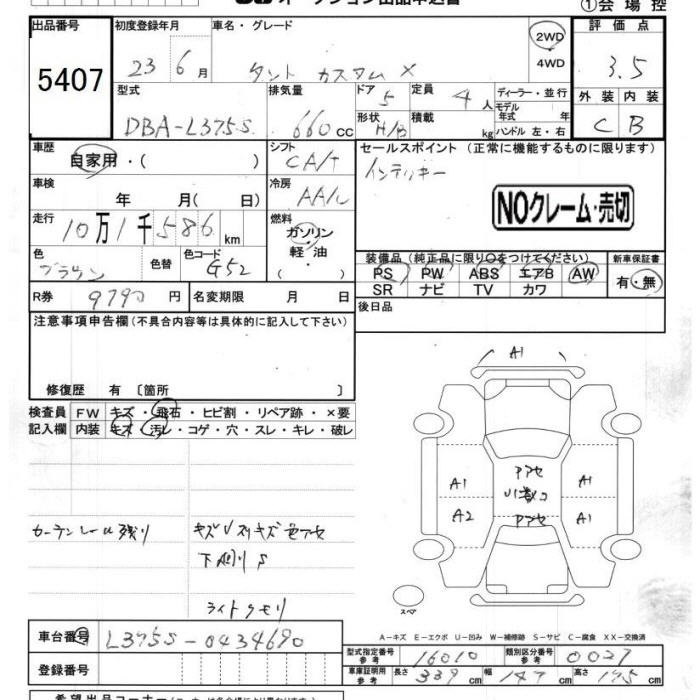 オークション出品申込書
①会場控
出品番号 初度登録年月 車名・グレード 2WD 4WD 評価点
5407 23 6月 タント カスタム X 3.5
型式 排気量 ドア 定員 ディーラー・並行 外装 内装
DBA-L375S 660cc 5 4人 モデル年式 年 C B
形状 H/B 積載 kg ハンドル 左・右
車歴 自家用・( ) シフト CA/T セールスポイント(正常に機能するものに限ります)
インテリキー
車検 年 月( 日) 冷房 AAC
NOクレーム・売切
走行 10万1千586km 燃料 ガソリン・軽油・( )
色 ブラウン 色替 色コード G52
装備品(純正品に限り○をつけてください) 新車保証書
PS PW ABS エアB AW 有・無
SR ナビ TV カワ
R券 9790円 名変期限 月 日 後日品
注意事項申告欄(不具合内容等は具体的に記入して下さい)
修復歴 有〔箇所 〕
検査員 FW キズ・飛石・ヒビ割・リペア跡・×要
記入欄 内装 キズ・汚レ・コゲ・穴・スレ・キレ・破レ
A1
A1 アアセ A1
小数コ
A2 アアセ A1
カーテンレール残り キズVスリキズ色アセ
下廻りS
ライトクモリ
スペア
A-キズ E-エクボ U-凹み W-補修跡 S-サビ C-腐食 XX-交換済
車台番号 L375S-0434690
型式指定番号 参考 16010 類別区分番号 参考 0027
登録番号
車庫証明用 参考 長さ 339cm 幅 147cm 高さ 175cm